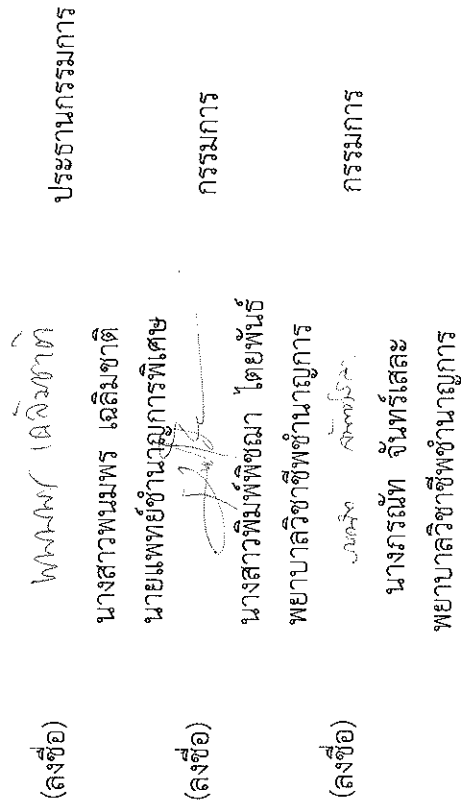 (ลงชื่อ) พนมพร เฉลิมชาติ ประธานกรรมการ
นางสาวพนมพร เฉลิมชาติ
นายแพทย์ชำนาญการพิเศษ
(ลงชื่อ) กรรมการ
นางสาวพิมพ์พิชฌา ไตยพันธ์
พยาบาลวิชาชีพชำนาญการ
(ลงชื่อ) กรรมการ
นางภรณัท จันทร์เสละ
พยาบาลวิชาชีพชำนาญการ